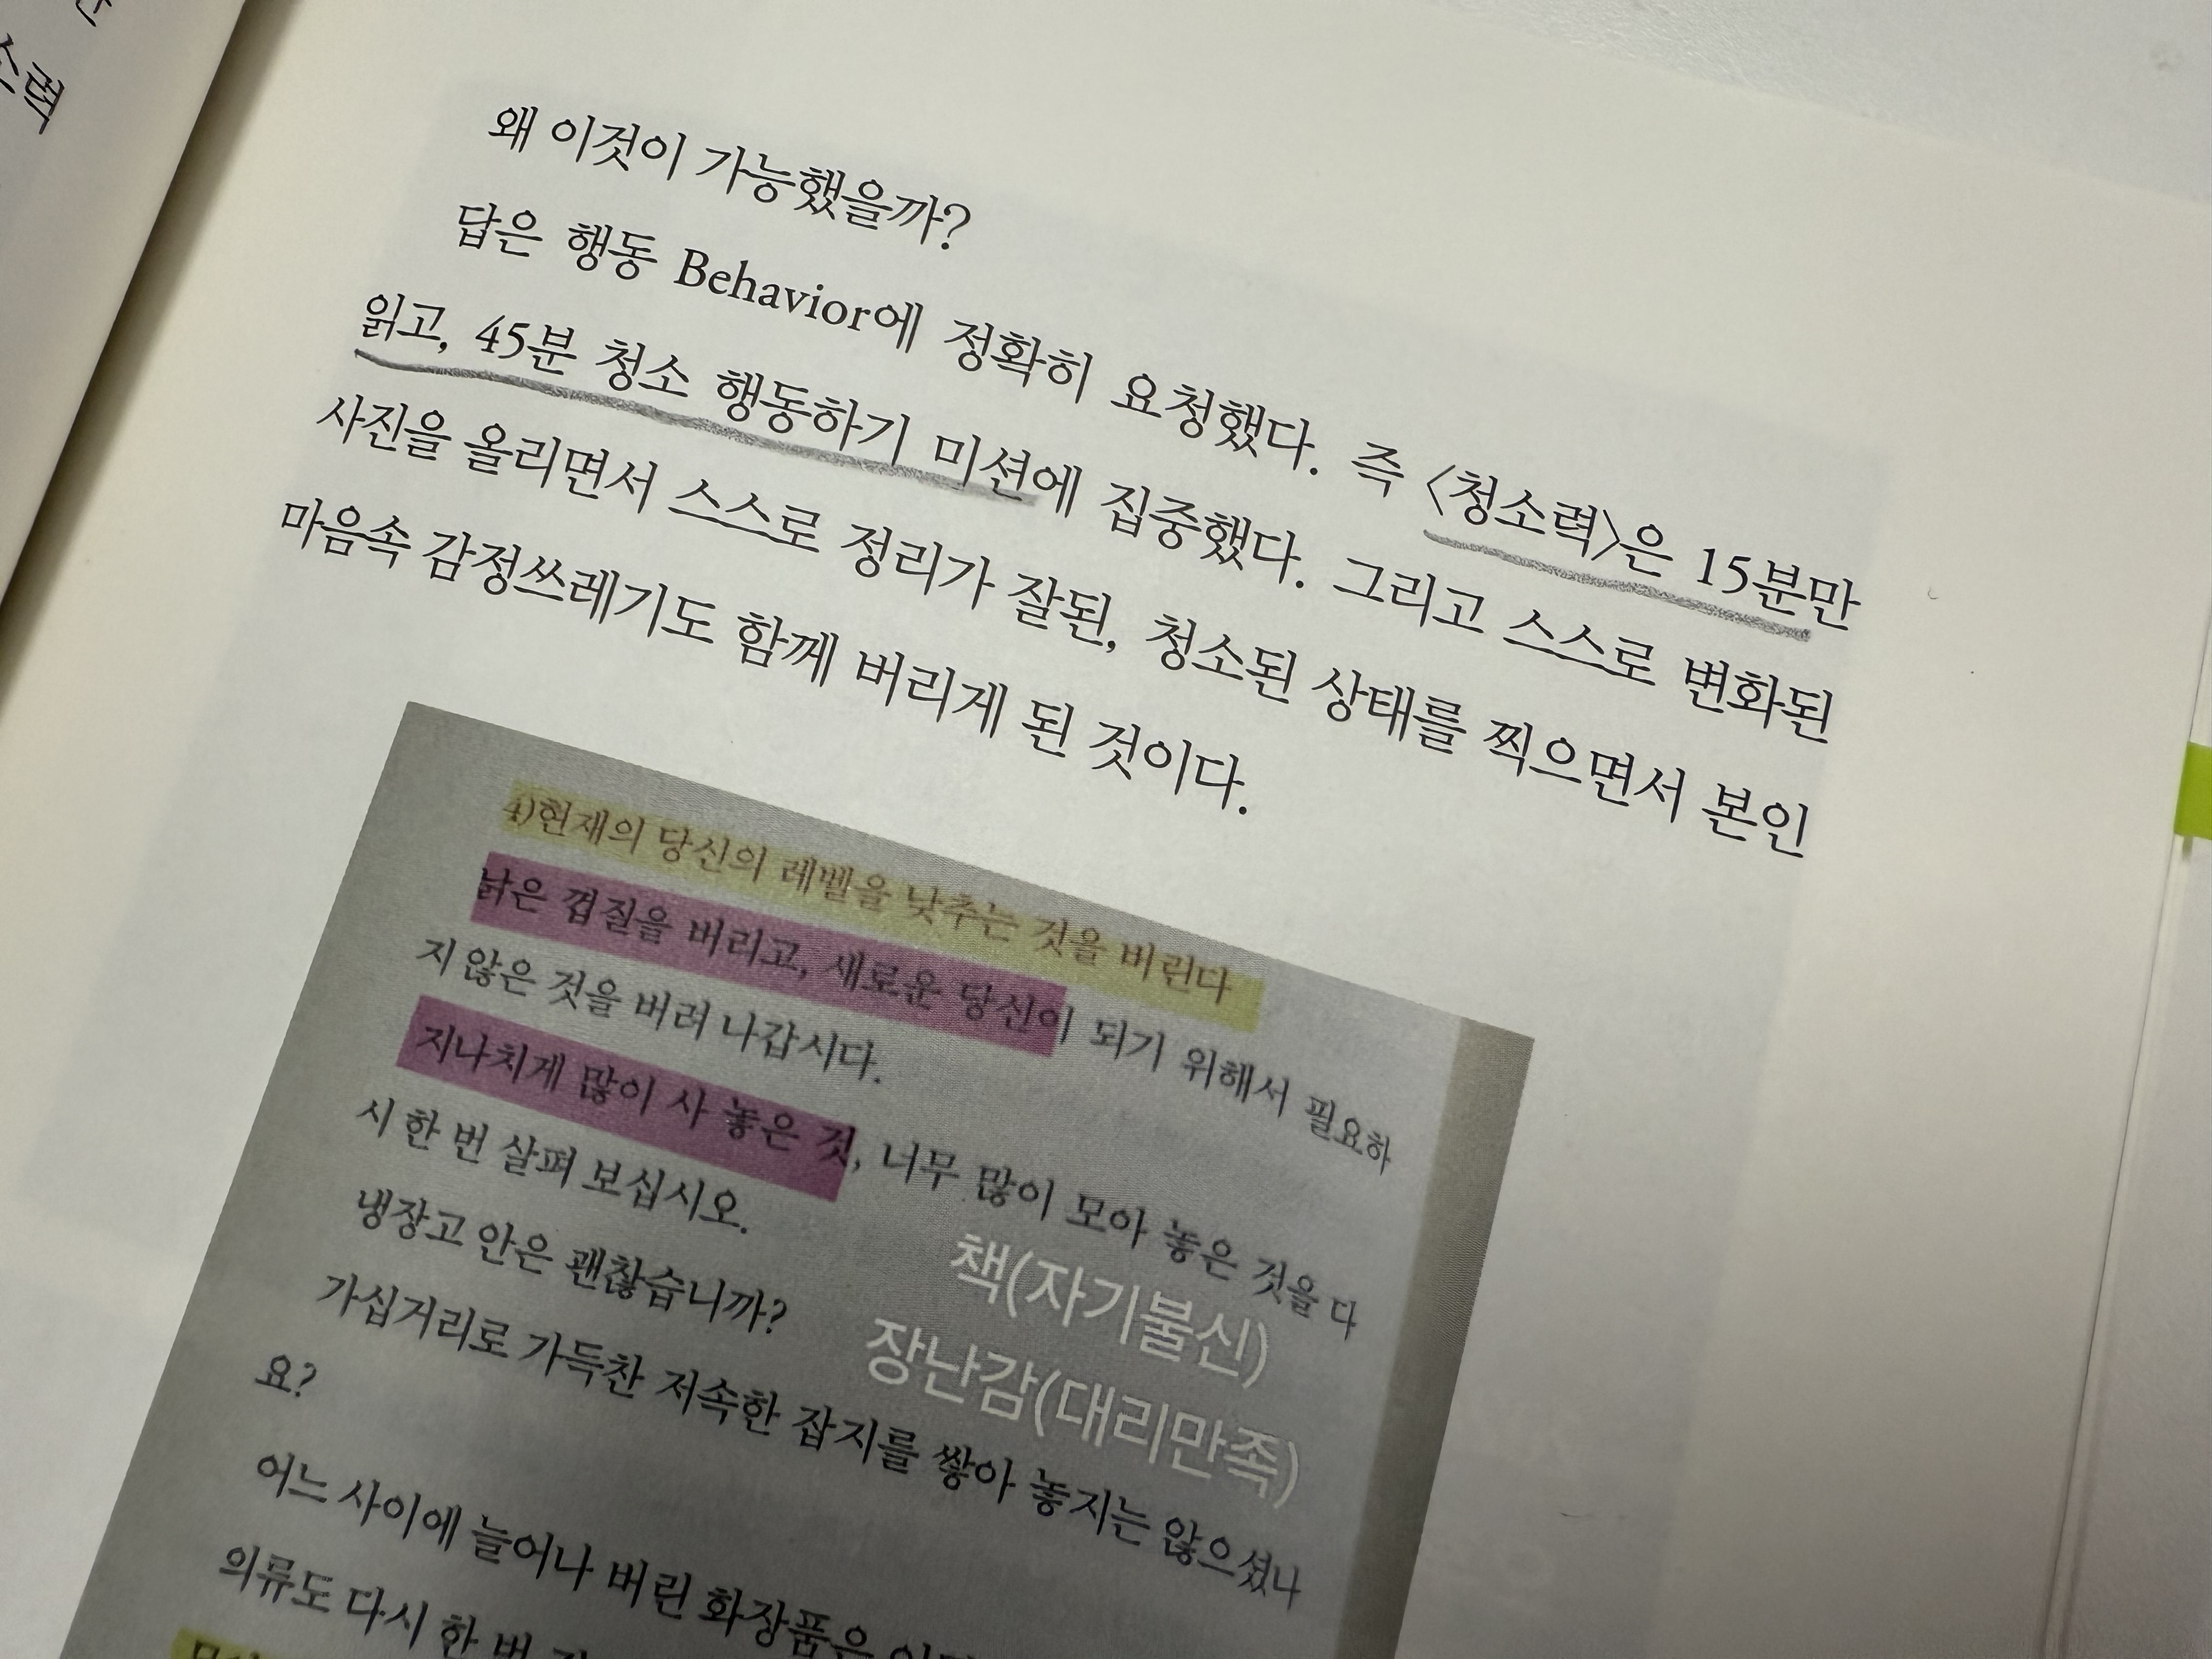 소력
왜 이것이 가능했을까?
답은 행동 Behavior에 정확히 요청했다. 즉 〈청소력〉은 15분만
읽고, 45분 청소 행동하기 미션에 집중했다. 그리고 스스로 변화된
사진을 올리면서 스스로 정리가 잘된, 청소된 상태를 찍으면서 본인
마음속 감정쓰레기도 함께 버리게 된 것이다.
4)현재의 당신의 레벨을 낮추는 것을 버린다
낡은 껍질을 버리고, 새로운 당신이 되기 위해서 필요하
지 않은 것을 버려 나갑시다.
지나치게 많이 사 놓은 것, 너무 많이 모아 놓은 것을 다
시 한 번 살펴 보십시오.
냉장고 안은 괜찮습니까?
책(자기불신)
장난감(대리만족)
가십거리로 가득찬 저속한 잡지를 쌓아 놓지는 않으셨나
요?
어느 사이에 늘어나 버린 화장품은
의류도 다시 한 번